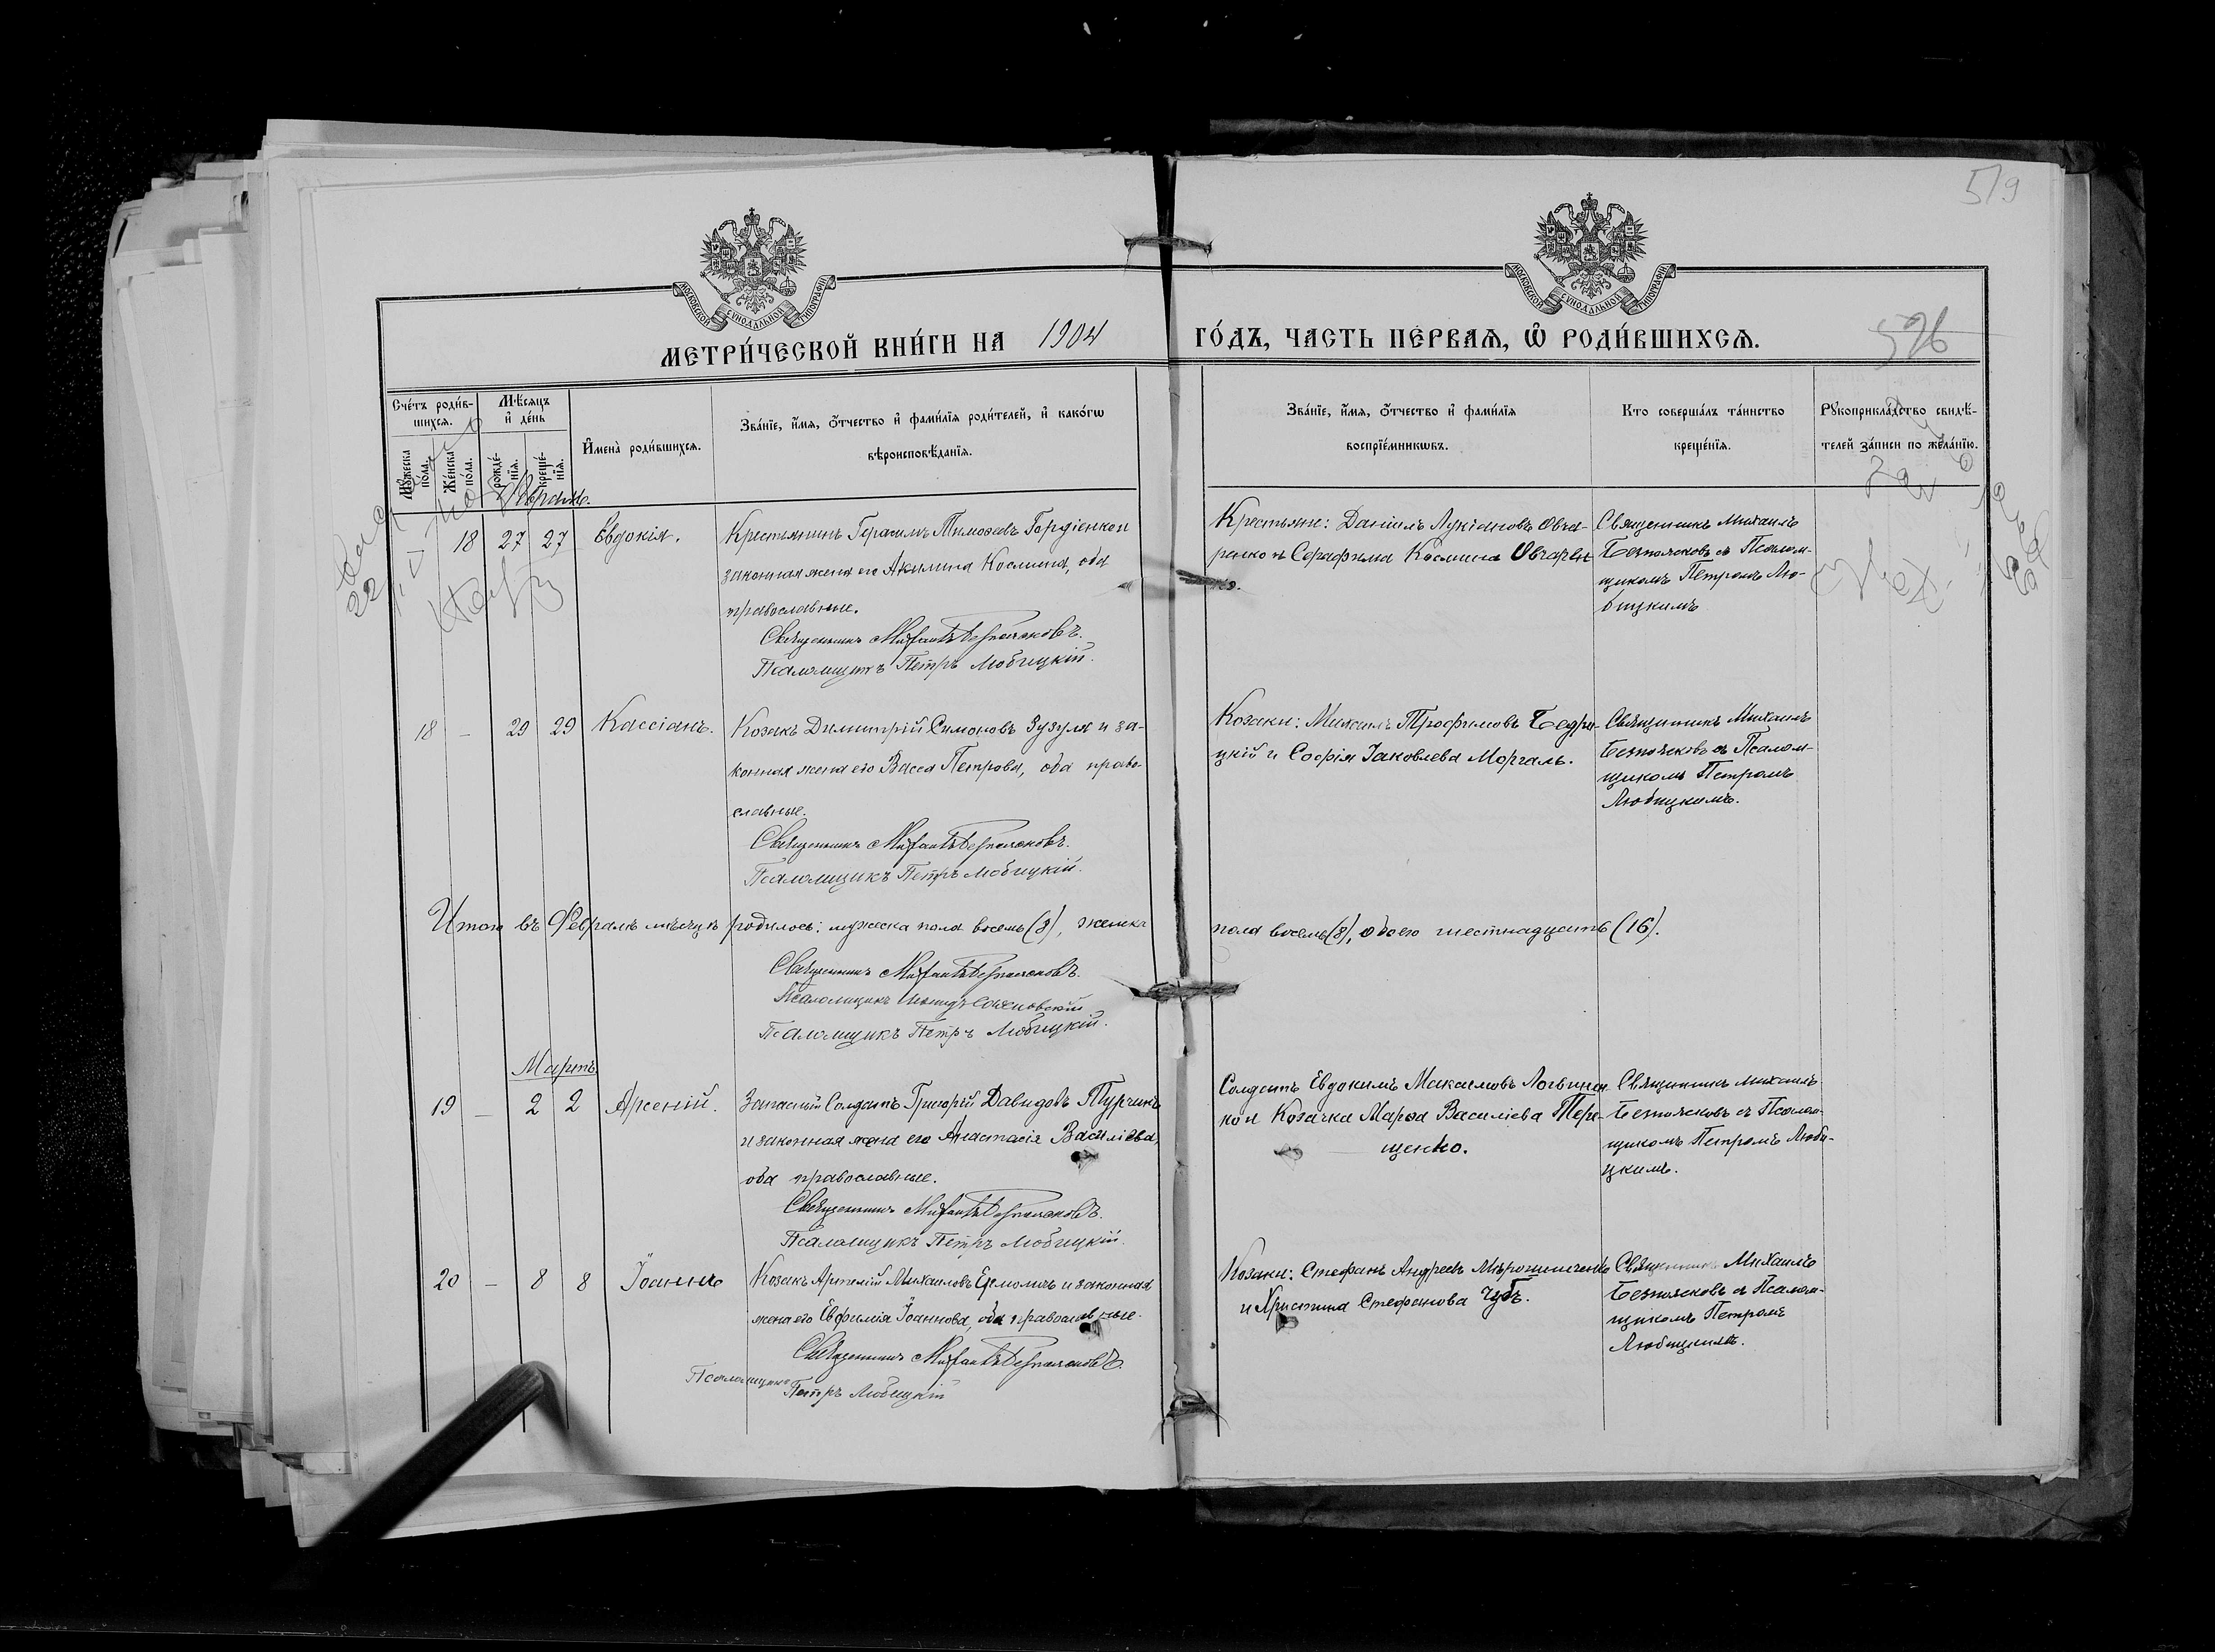 519
МОСКОВСКОЙ СѴНОДАЛЬНОЙ ТИПОГРАФІИ
МОСКОВСКОЙ СѴНОДАЛЬНОЙ ТИПОГРАФІИ
МЕТРИ́ЧЕСКОЙ КНИ́ГИ НА 1904 ГО́ДЪ, ЧАСТЬ ПЕ́РВАѦ, Ѡ҆ РОДИ́ВШИХСѦ.
Сче́тъ роди́в-
шихсѧ.
Мꙋжеска по́ла.
Же́нска по́ла.
Мѣ́сяцъ
и҆ де́нь
рожде́-
нїѧ.
креще́-
нїѧ.
И҆мена̀ роди́вшихсѧ.
Зва́нїе, и҆́мѧ, ѻ҆́тчество и҆ фами́лїѧ роди́телей, и҆ како́гѡ
вѣроисповѣ́данїѧ.
Зва́нїе, и҆́мѧ, ѻ҆́тчество и҆ фами́лїѧ
воспрїе́мникѡвъ.
Кто соверша́лъ та́инство
креще́нїѧ.
Рꙋкоприкла́дство свидѣ́-
телей за́писи по жела́нїю.
Февраль.
18 27 27 Евдокія.
Крестьянинъ Герасимъ Тимофеевъ Гордіенко и
законная жена его Акилина Космина, оба
православные.
Священникъ Михаилъ Безпоясковъ.
Псаломщикъ Петръ Любицкій.
Крестьяне: Даніилъ Лукіановъ Овча-
ренко и Серафима Космина Овчарен
ко.
Священникъ Михаилъ
Безпоясковъ съ Псалом-
щикомъ Петромъ Лю-
бицкимъ
18 – 29 29 Кассіанъ.
Козакъ Димитрій Симоновъ Зузуля и за-
конная жена его Васса Петрова, оба право-
славные.
Священникъ Михаилъ Безпоясковъ.
Псаломщикъ Петръ Любицкій.
Козаки: Михаилъ Трофимовъ Бедри-
цкій и Софія Іаковлева Моргаль.
Священникъ Михаилъ
Безпоясковъ съ Псалом-
щикомъ Петромъ
Любицкимъ.
Итого въ Февралѣ мѣсяцѣ родилось: мужеска пола восемь (8), женска пола восемь (8), обоего шестнадцать (16).
Священникъ Михаилъ Безпоясковъ.
Псаломщикъ
Псаломщикъ Петръ Любицкій.
Мартъ
19 – 2 2 Арсеній.
Запасный Солдатъ Григорій Давидовъ Турчинъ
и законная жена его Анастасія Василіева,
оба православные.
Священникъ Михаилъ Безпоясковъ.
Псаломщикъ Петръ Любицкій.
Солдатъ Евдокимъ Максимовъ Логвинен
ко и Козачка Марѳа Василіева Тере-
щенко.
Священникъ Михаилъ
Безпоясковъ съ Псалом-
щикомъ Петромъ Люби-
цкимъ.
20 – 8 8 Іоаннъ
Козакъ Артемій Михаиловъ и законная
жена его Евфимія Іоаннова, оба православные.
Священникъ Михаилъ Безпоясковъ.
Псаломщикъ
Петръ Любицкій
Козаки: Стефанъ Андреевъ Мирошниченко
и Христина Стефанова Чубъ.
Священникъ Михаилъ
Безпоясковъ съ Псалом-
щикомъ Петромъ
Любицкимъ.